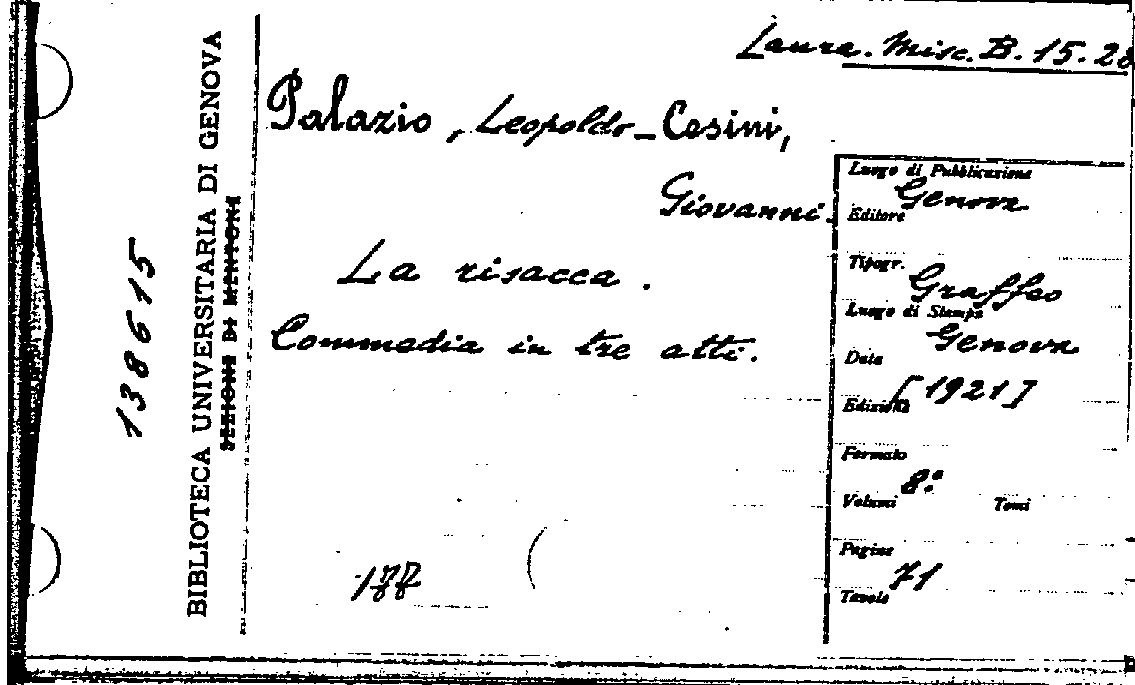 Laura. Misc. B. 15. 28
Palazio, Leopoldo - Cesini,
Giovanni.
La risacca.
Commedia in tre atti.
177
138615
BIBLIOTECA UNIVERSITARIA DI GENOVA
SEZIONE DI MENTONE
Luogo di Pubblicazione
Genova
Editore
Tipogr.
Graffeo
Luogo di Stampa
Genova
Data
[1921]
Edizione
Formato
8.°
Volumi Tomi
Pagine
71
Tavole